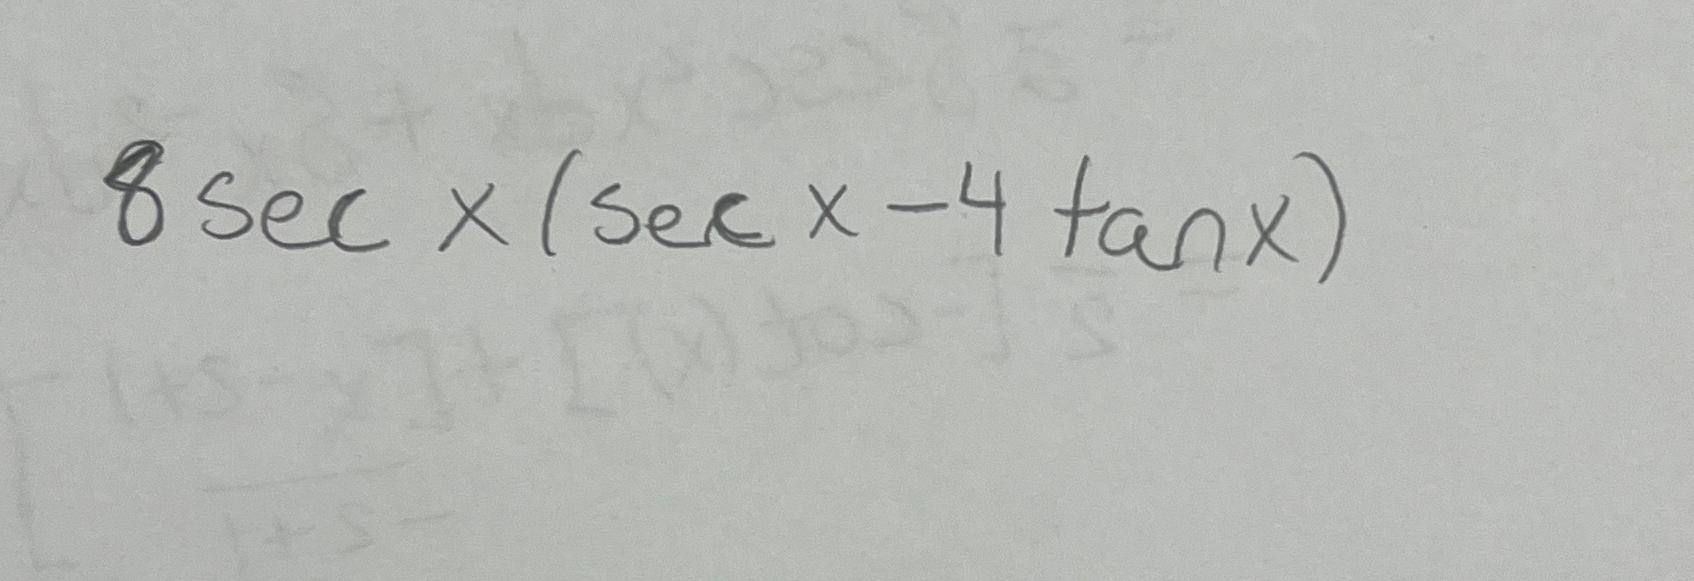 8 sec x (sec x - 4 tan x)